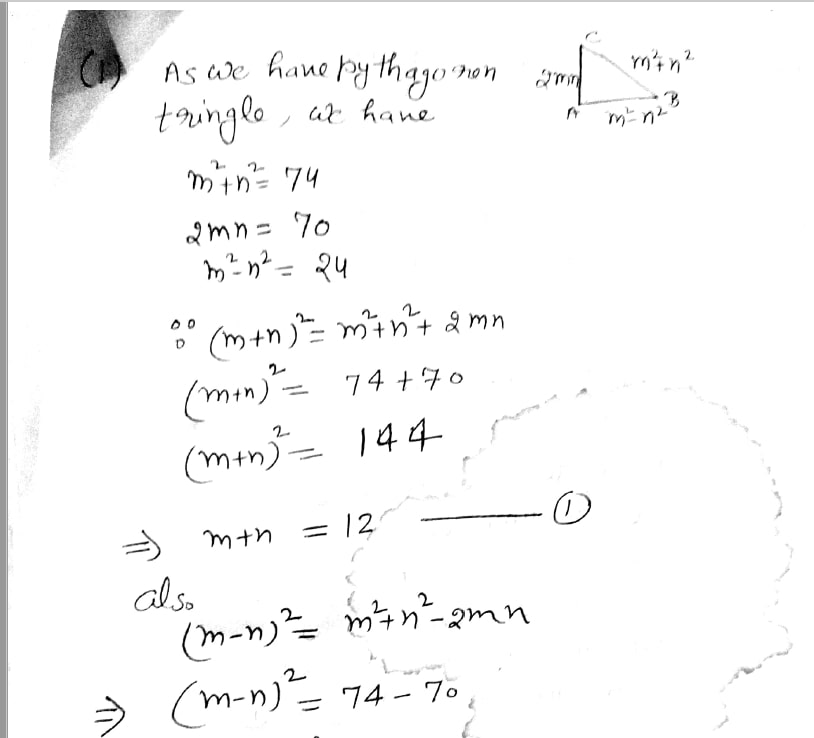 (1) As we have pythagoron
tringle, we have
C
2mn
m²+n²
A
m²-n²
B
m²+n² = 74
2mn = 70
m²-n² = 24
∵ (m+n)² = m²+n²+2mn
(m+n)² = 74+70
(m+n)² = 144
⇒ m+n = 12 ——— ①
also
(m-n)² = m²+n²-2mn
⇒ (m-n)² = 74-70